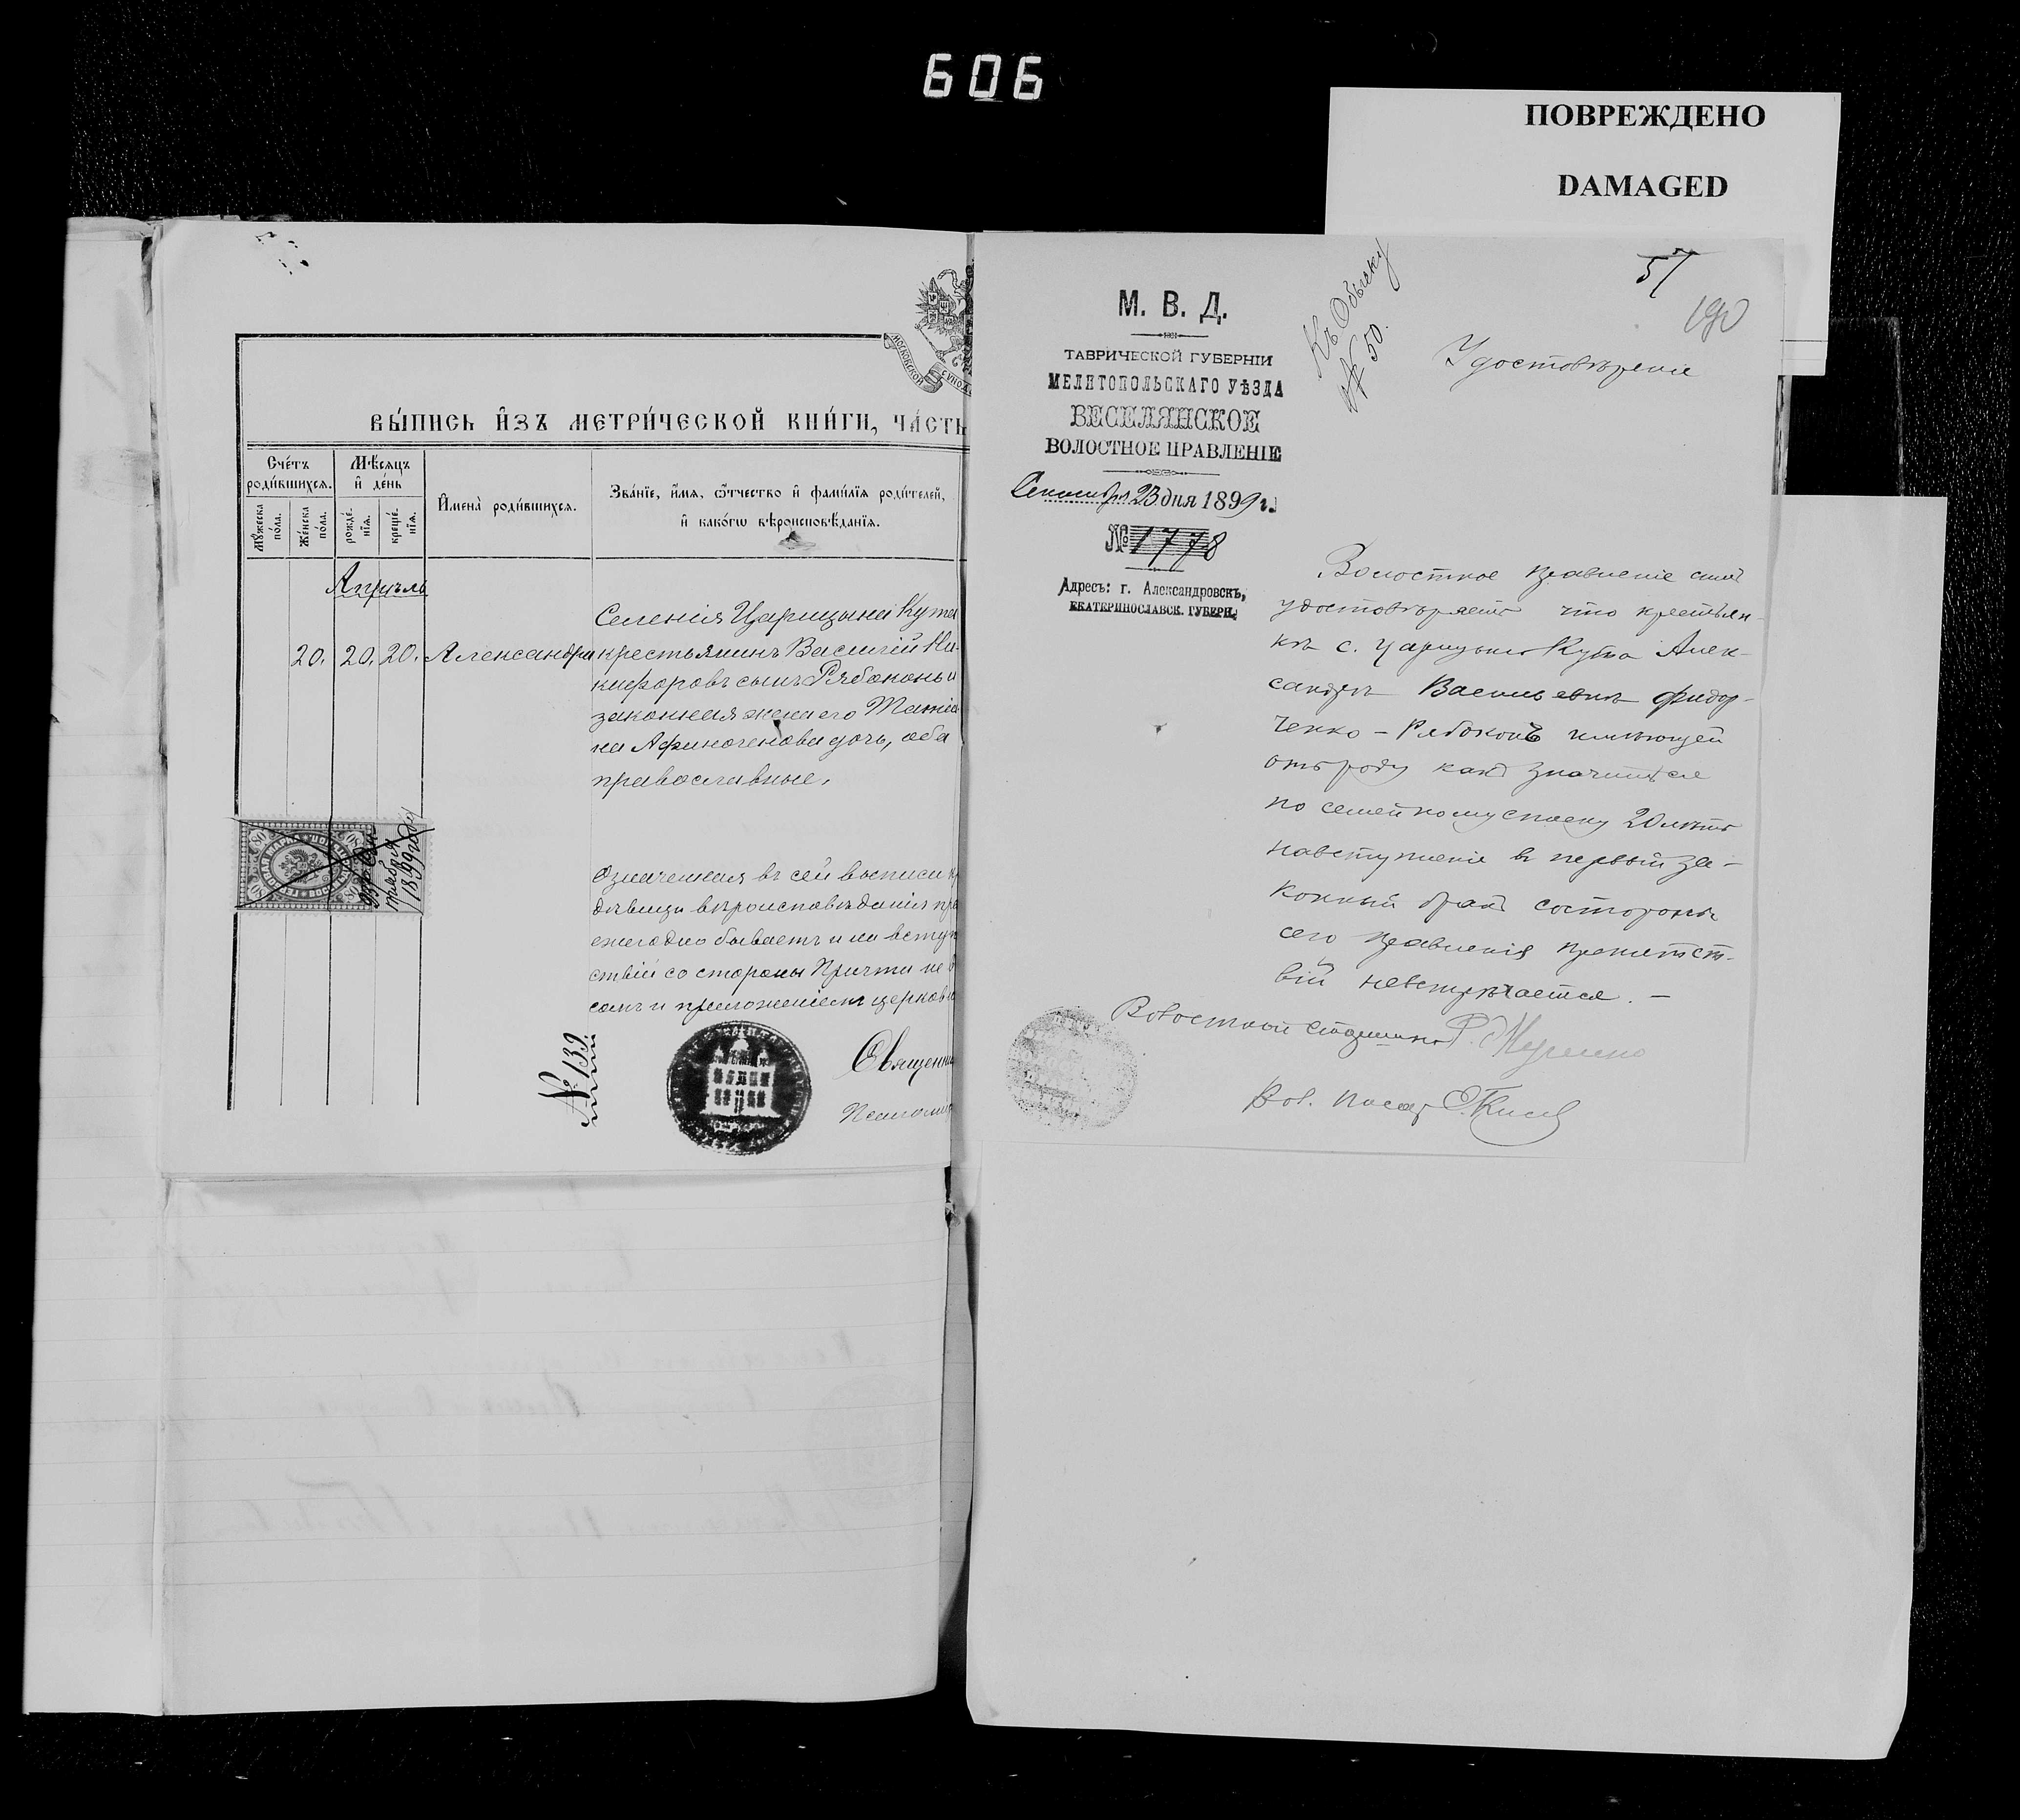 606
ПОВРЕЖДЕНО
DAMAGED
МОСКОВСКОЙ
ВЫ́ПИСЬ И҆ЗЪ МЕТРИ́ЧЕСКОЙ КНИ́ГИ, ЧА́СТЬ
Сче́тъ роди́вшихся.
Мꙋ́жеска по́ла.
Же́нска по́ла.
Мѣ́сяцъ и҆ де́нь
рожде́нїя.
креще́нїя.
И҆мена̀ роди́вшихся.
Зва́нїе, и҆́мя, ѻ҆́тчество и҆ фами́лїя роди́телей,
и҆ како́гѡ вѣроисповѣ́данїя.
Апрѣль
20. 20. 20. Александра
Селенія Царицына Кута
крестьянинъ Василій Ни-
кифоровъ сынъ Рябоконь и
законная жена его Татіа
на Афиногенова дочь, оба
православные.
80 80
1899 году
Означенная въ сей выписи
дѣвица вѣроисповѣданія пра
ежегодно бываетъ и на вступ
ствій со стороны Причта не
самъ и приложеніемъ церковн
№ 139
Священни
Псаломщ
М. В. Д.
ТАВРИЧЕСКОЙ ГУБЕРНІИ
МЕЛИТОПОЛЬСКАГО УѢЗДА
ВЕСЕЛЯНСКОЕ
ВОЛОСТНОЕ ПРАВЛЕНІЕ
Сентября 23 дня 1899 г.
№ 1778
Адресъ: г. Александровскъ,
ЕКАТЕРИНОСЛАВСК. ГУБЕРН.
Къ Обыску
№ 50.
57
190
Удостовѣреніе
Волостное правленіе симъ
удостовѣряетъ что крестьян-
кѣ с. Царицына Кута Алек-
сандрѣ Васильевнѣ Фидор-
ченко - Рябоконъ имѣющей
отъ роду какъ значится
по семейному списку 20 лѣтъ
на вступленіе въ первый за-
конный бракъ со стороны
сего правленія препятст-
вій невстрѣчается. -
Волостной Старшина
Вол. Писарь